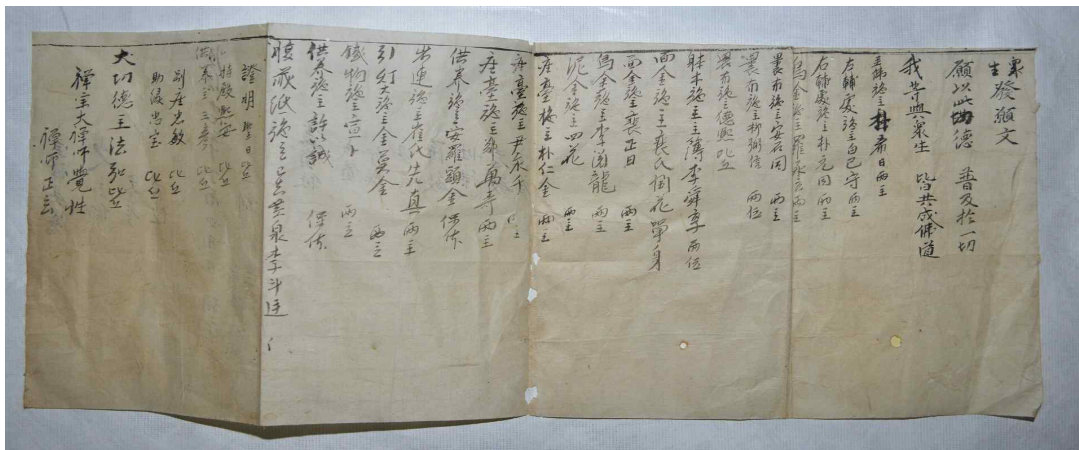 衆生發願文
願以此功德 普及於一切
我等與衆生 皆共成佛道
主佛施主朴 日兩主
左輔處施主白已守兩主
右輔處施主朴元同兩主
烏金施主羅永云兩主
裏布施主安 同 兩主
裏布施主柳弼信 兩位
裏布施主德熙比丘
体木施主主 李舜 兩位
面金施主主裵氏 花單身
面金施主裵正日 兩主
烏金施主李 龍 兩主
泥金施主四花 兩主
座臺施主朴仁金 兩主
座臺施主尹永千
座臺施主 萬年 兩主
供養施主安羅 金保体
朱連施主崔代先真 兩主
引灯大施主金 金 兩主
鐵物施主宣 兩主
供養施主許 誠 保体
腹藏紙施主吳 泉李斗廷
證明 日比丘
持殿熙安 比丘
供養主三 比丘
別座 敏 比丘
助緣忠宝 比丘
大功德主法 比丘
禪宗大禪師覺性
禪師正玄